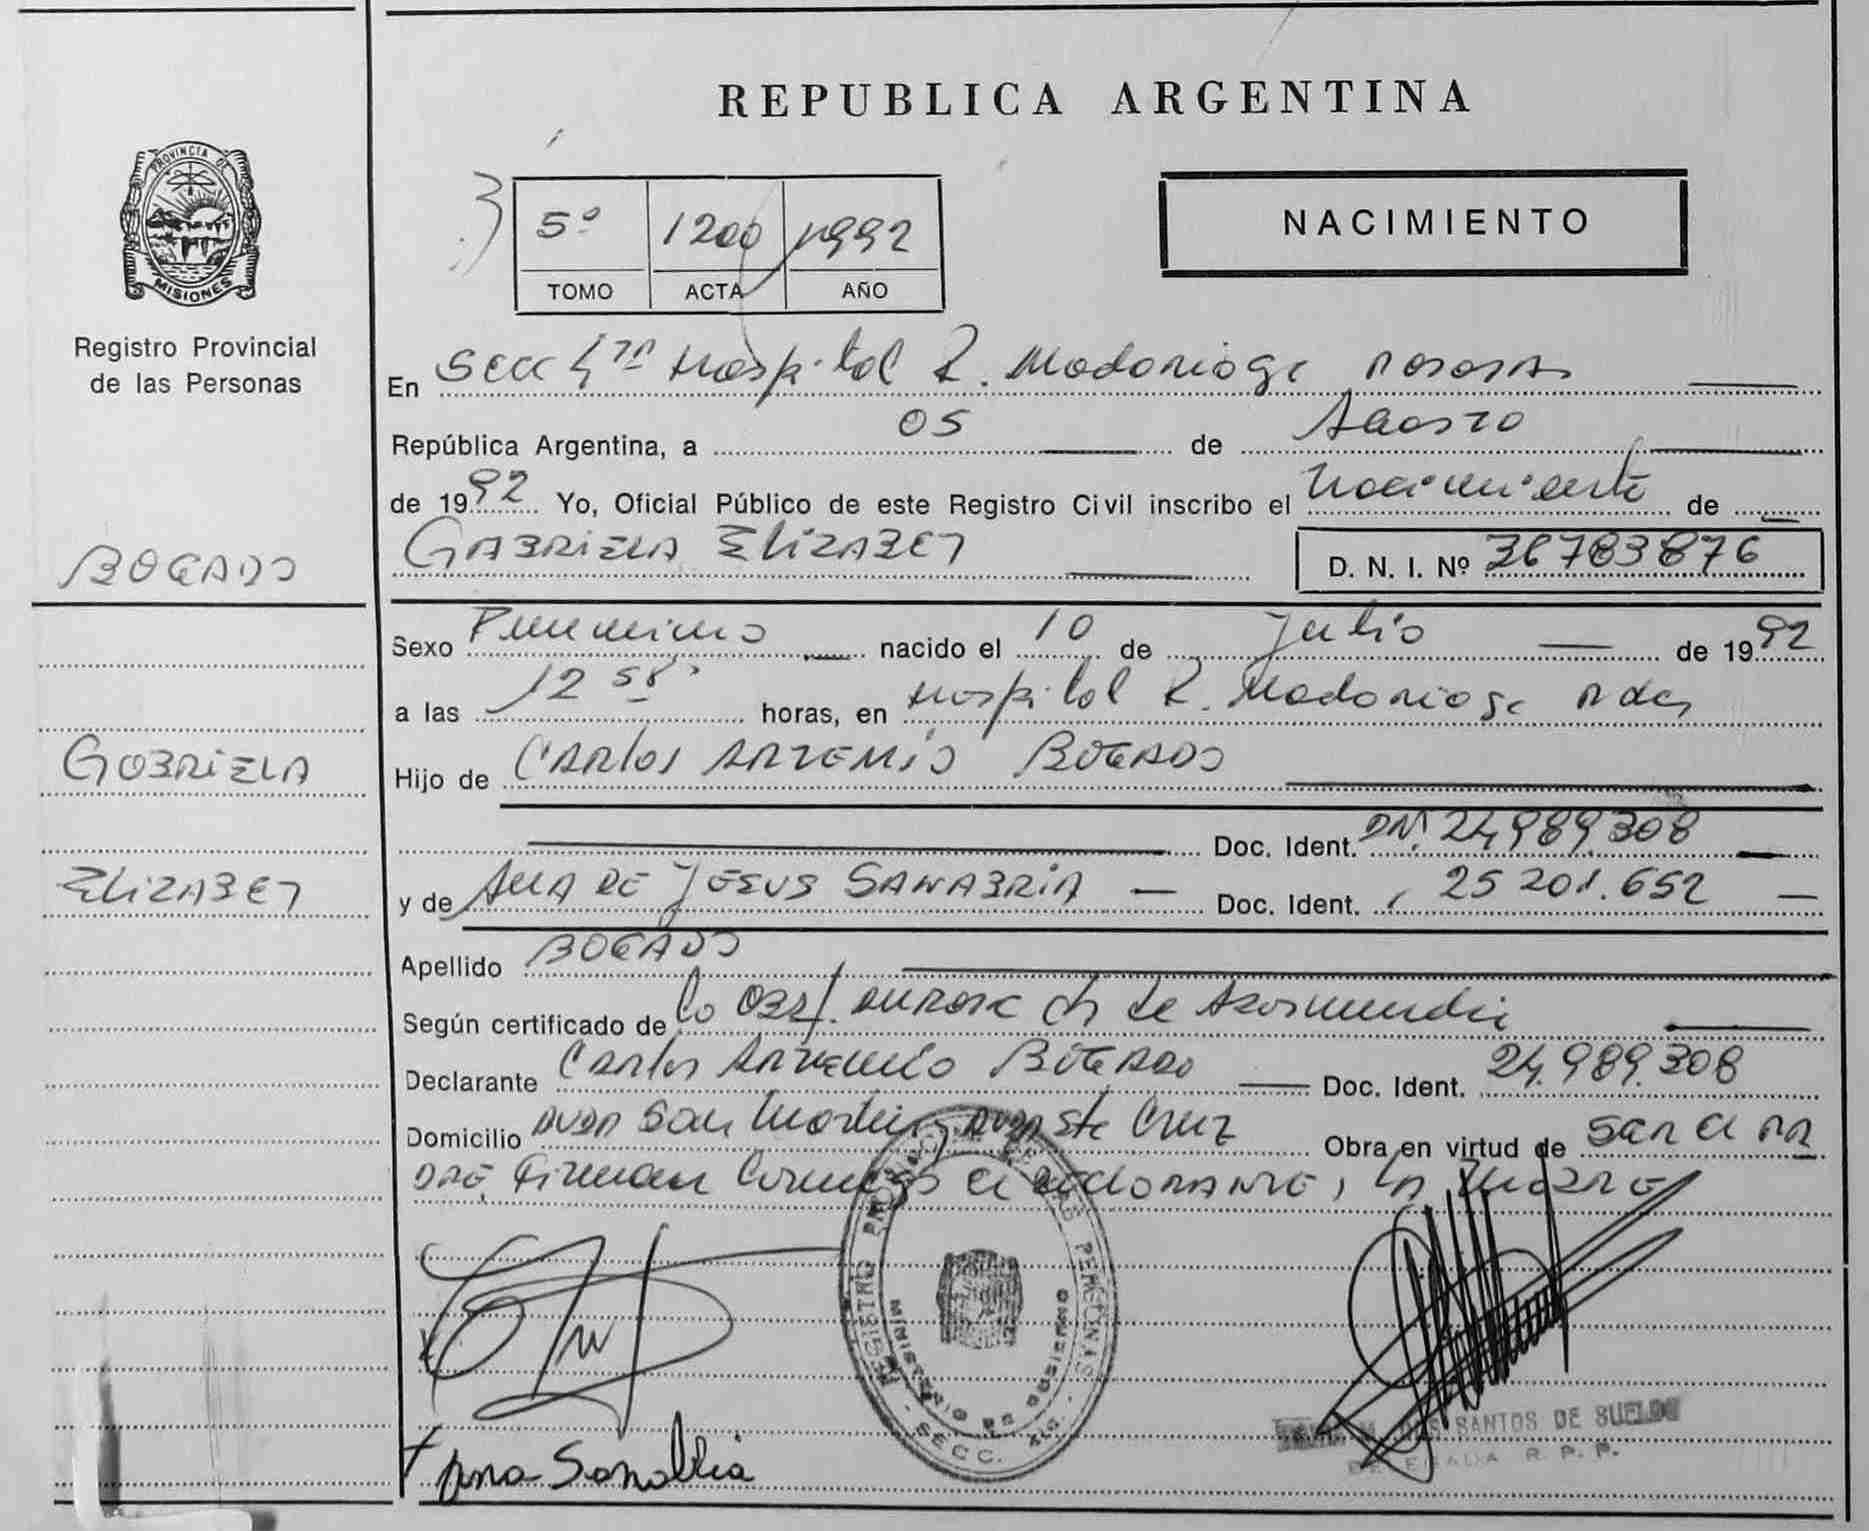 REPUBLICA ARGENTINA
PROVINCIA DE
MISIONES
Registro Provincial
de las Personas
5º 1200 1992
TOMO ACTA AÑO
NACIMIENTO
En Secc 4ta Hospital R. Madariaga
República Argentina, a 05 de Agosto
de 1992 Yo, Oficial Público de este Registro Civil inscribo el nacimiento de
BOGADO
GABRIELA ELIZABET D. N. I. Nº 36783876
Sexo Femenino nacido el 10 de Julio de 1992
a las 12 58 horas, en Hospital R. Madariaga
GABRIELA
Hijo de CARLOS ARTEMIO BOGADO
Doc. Ident. DNI 24.989.308
ELIZABET
y de ANA DE JESUS SANABRIA Doc. Ident. 25 201.652
Apellido BOGADO
Según certificado de la Obst. de
Declarante Carlos Artemio BOGADO Doc. Ident. 24.989.308
Domicilio Avda San Martin Avda Sta Cruz Obra en virtud de
Firman el declarante, la madre
REGISTRO PERSONAS
MINISTERIO DE GOBIERNO
SECC.
Ana Sanabria
SANTOS DE SUELDO
R. P. P.